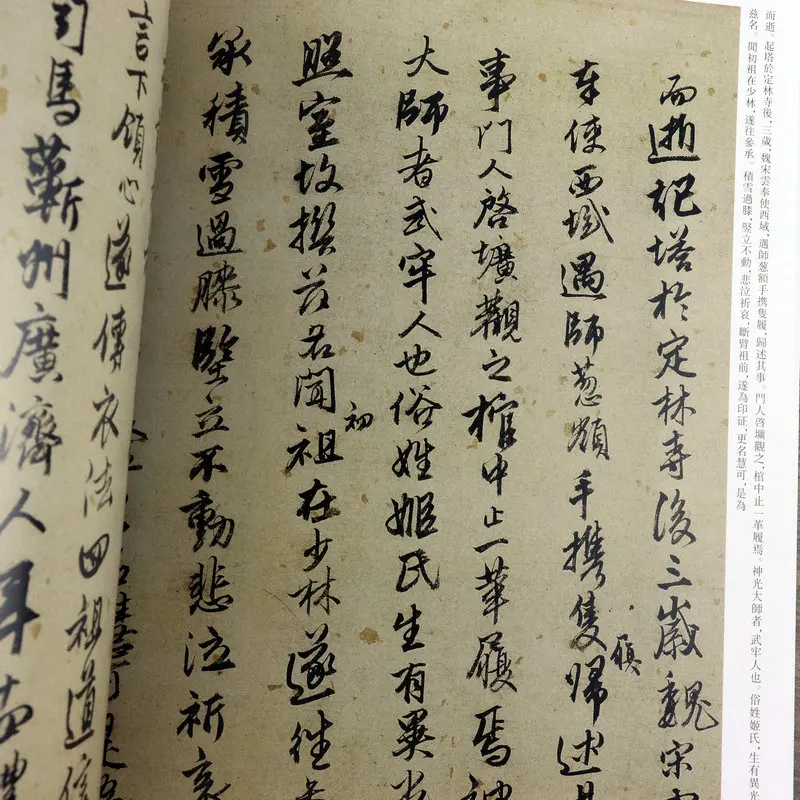 而逝。起塔於定林寺後,三歲,魏宋雲奉使西域,遇師葱額手携隻履,歸述其事。門人啓壙觀之,棺中止一革履焉。神光大師者,武牢人也。俗姓姬氏,生有異光
茲名。聞初祖在少林,遂往參承。積雪過膝,竪立不動,悲泣祈哀,斷臂祖前,遂為印证,更名慧可,是為
而逝起塔於定林寺後三歲魏宋
奉使西域遇師葱額手携隻履歸述
事門人啓壙觀之棺中止一革履焉神
大師者武牢人也俗姓姬氏生有異光
照室故撰茲名聞初祖在少林遂往
承積雪過膝竪立不動悲泣祈哀
言下領心遂傳衣法四祖道信
司馬蘄州廣濟人年十四